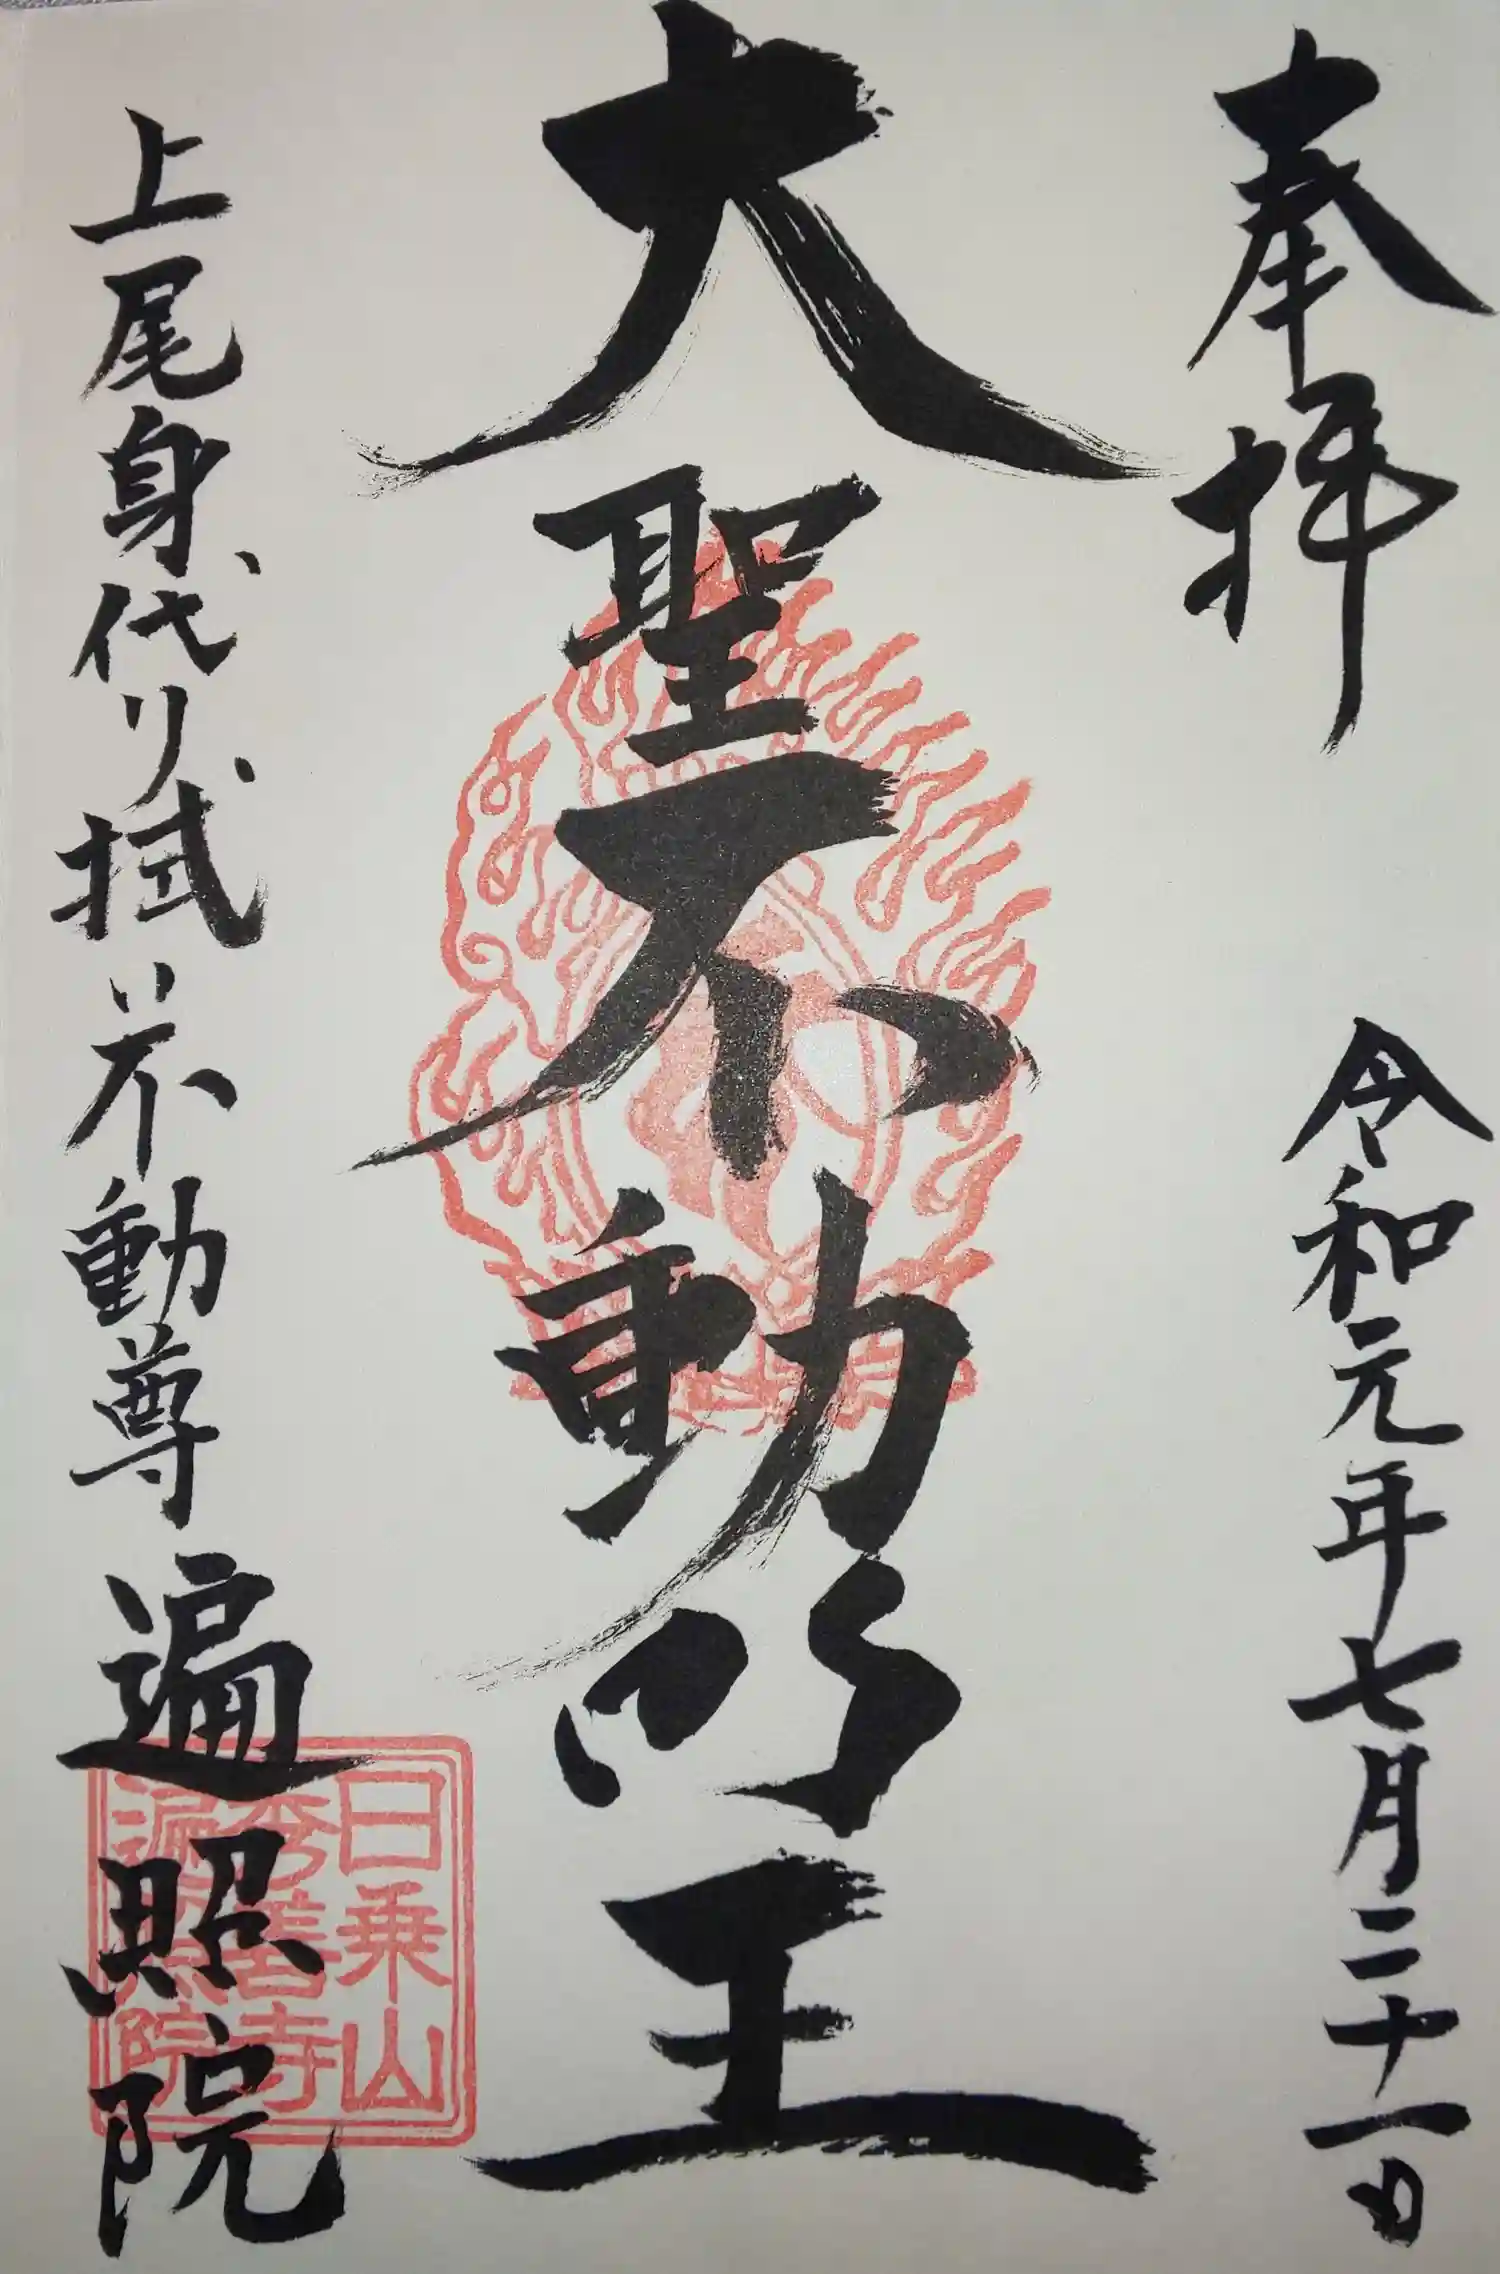 奉拝
令和元年七月二十一日
大聖不動明王
上尾身代り拭不動尊
遍照院
日乗山
秀善寺
遍照院